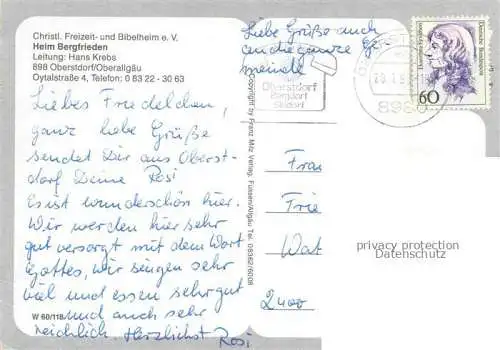 Christl. Freizeit- und Bibelheim e. V.
Heim Bergfrieden
Leitung: Hans Krebs
898 Oberstdorf/Oberallgäu
Oytalstraße 4, Telefon: 0 83 22 - 30 63
Liebes Friedelchen,
ganz liebe Grüße
sendet Dir aus Oberst-
dorf Deine Rosi
Es ist wunderschön hier.
Wir werden hier sehr
gut versorgt mit dem Wort
Gottes, wir singen sehr
viel und essen sehr gut
und auch sehr
reichlich. Herzlichst Rosi
W 60/118
Copyright by Franz Milz Verlag, Füssen/Allgäu Tel. 08362/6008
Liebe Grüße auch
an die ganze Ge-
meinde
Oberstdorf
Bergdorf
Skidorf
8980
Deutsche Bundespost
60
Frau
Frie
Wat
2400
privacy protection
Datenschutz